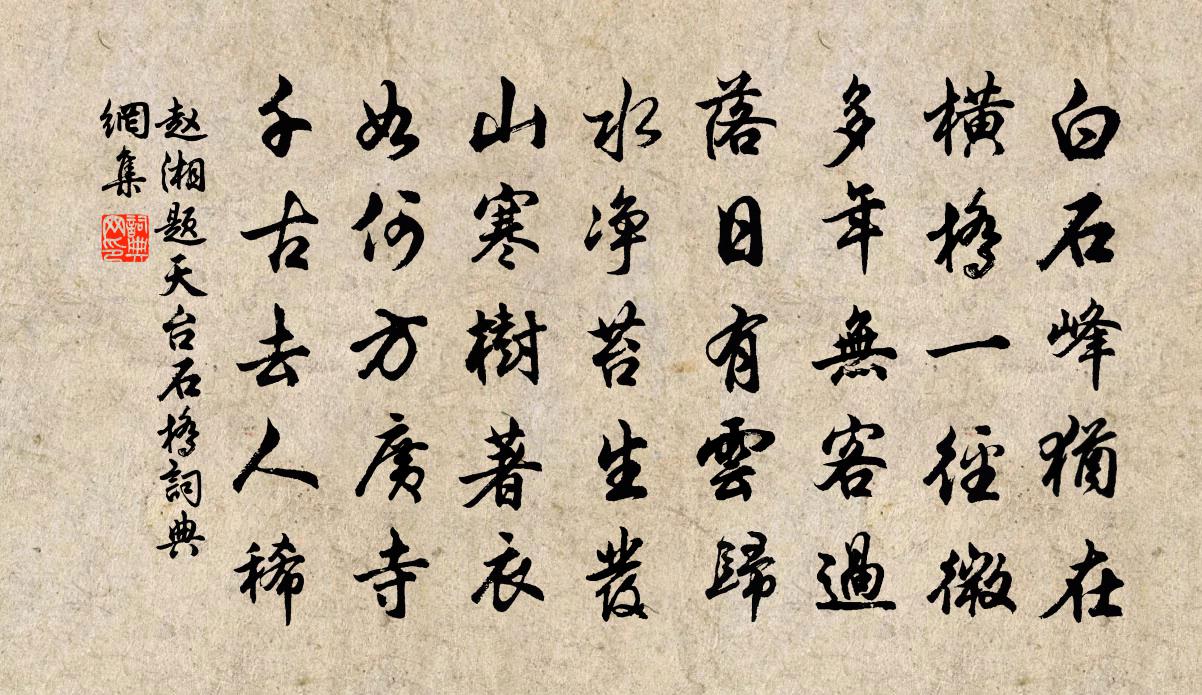 白石峰猶在
橫橋一徑微
多年無客過
落日有雲歸
水淨苔生發
山寒樹著衣
如何方廣寺
千古去人稀
赵湘题天台石橋詞典
網集
詞典
网印